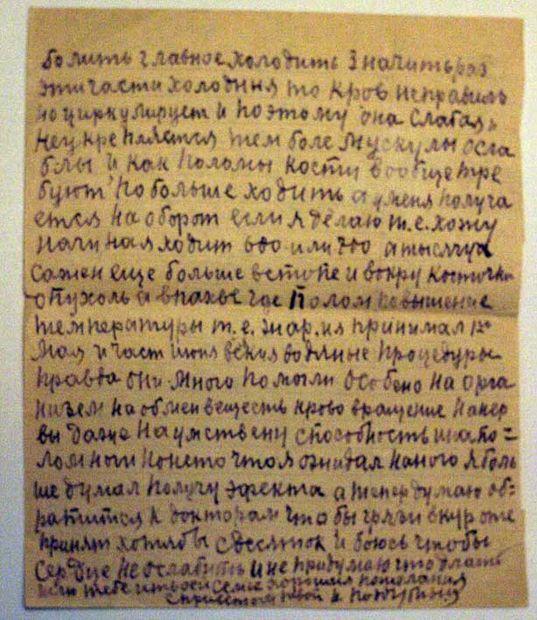 болить главное холодить значить раз
эти части холодныя то кров неправиль
но циркулирует и поэтому она слабая
неукрепляется тем боле мускулы осла
блы и как поломы кости вообще тре
буют побольше ходить а уменя получа
ется на оборот если я делаю т.е. хожу
начиная ходит 600 или 700 а тысячу
сажен еще больше встопе и вокру косточки
опухоль а впахве где полом повышение
температуры т.е. жар. ия принимал
мая и част июня вския водяные процедуры
правда они много помогли особено на орга
низем на обмен веществ крово вращение на нер
вы даже на умствену способность и на по=
лом ноги но не то что я ожидал на ного я боль
ше думал получу эфекта а тепер думаю об=
ратится к докторам что бы грязи вкурорте
принят хотябы сдесяток и боюсь чтобы
сердце не ослабить и не придумаю что делать
тебе и твоей семье хорошия пожелания
с приветом твой